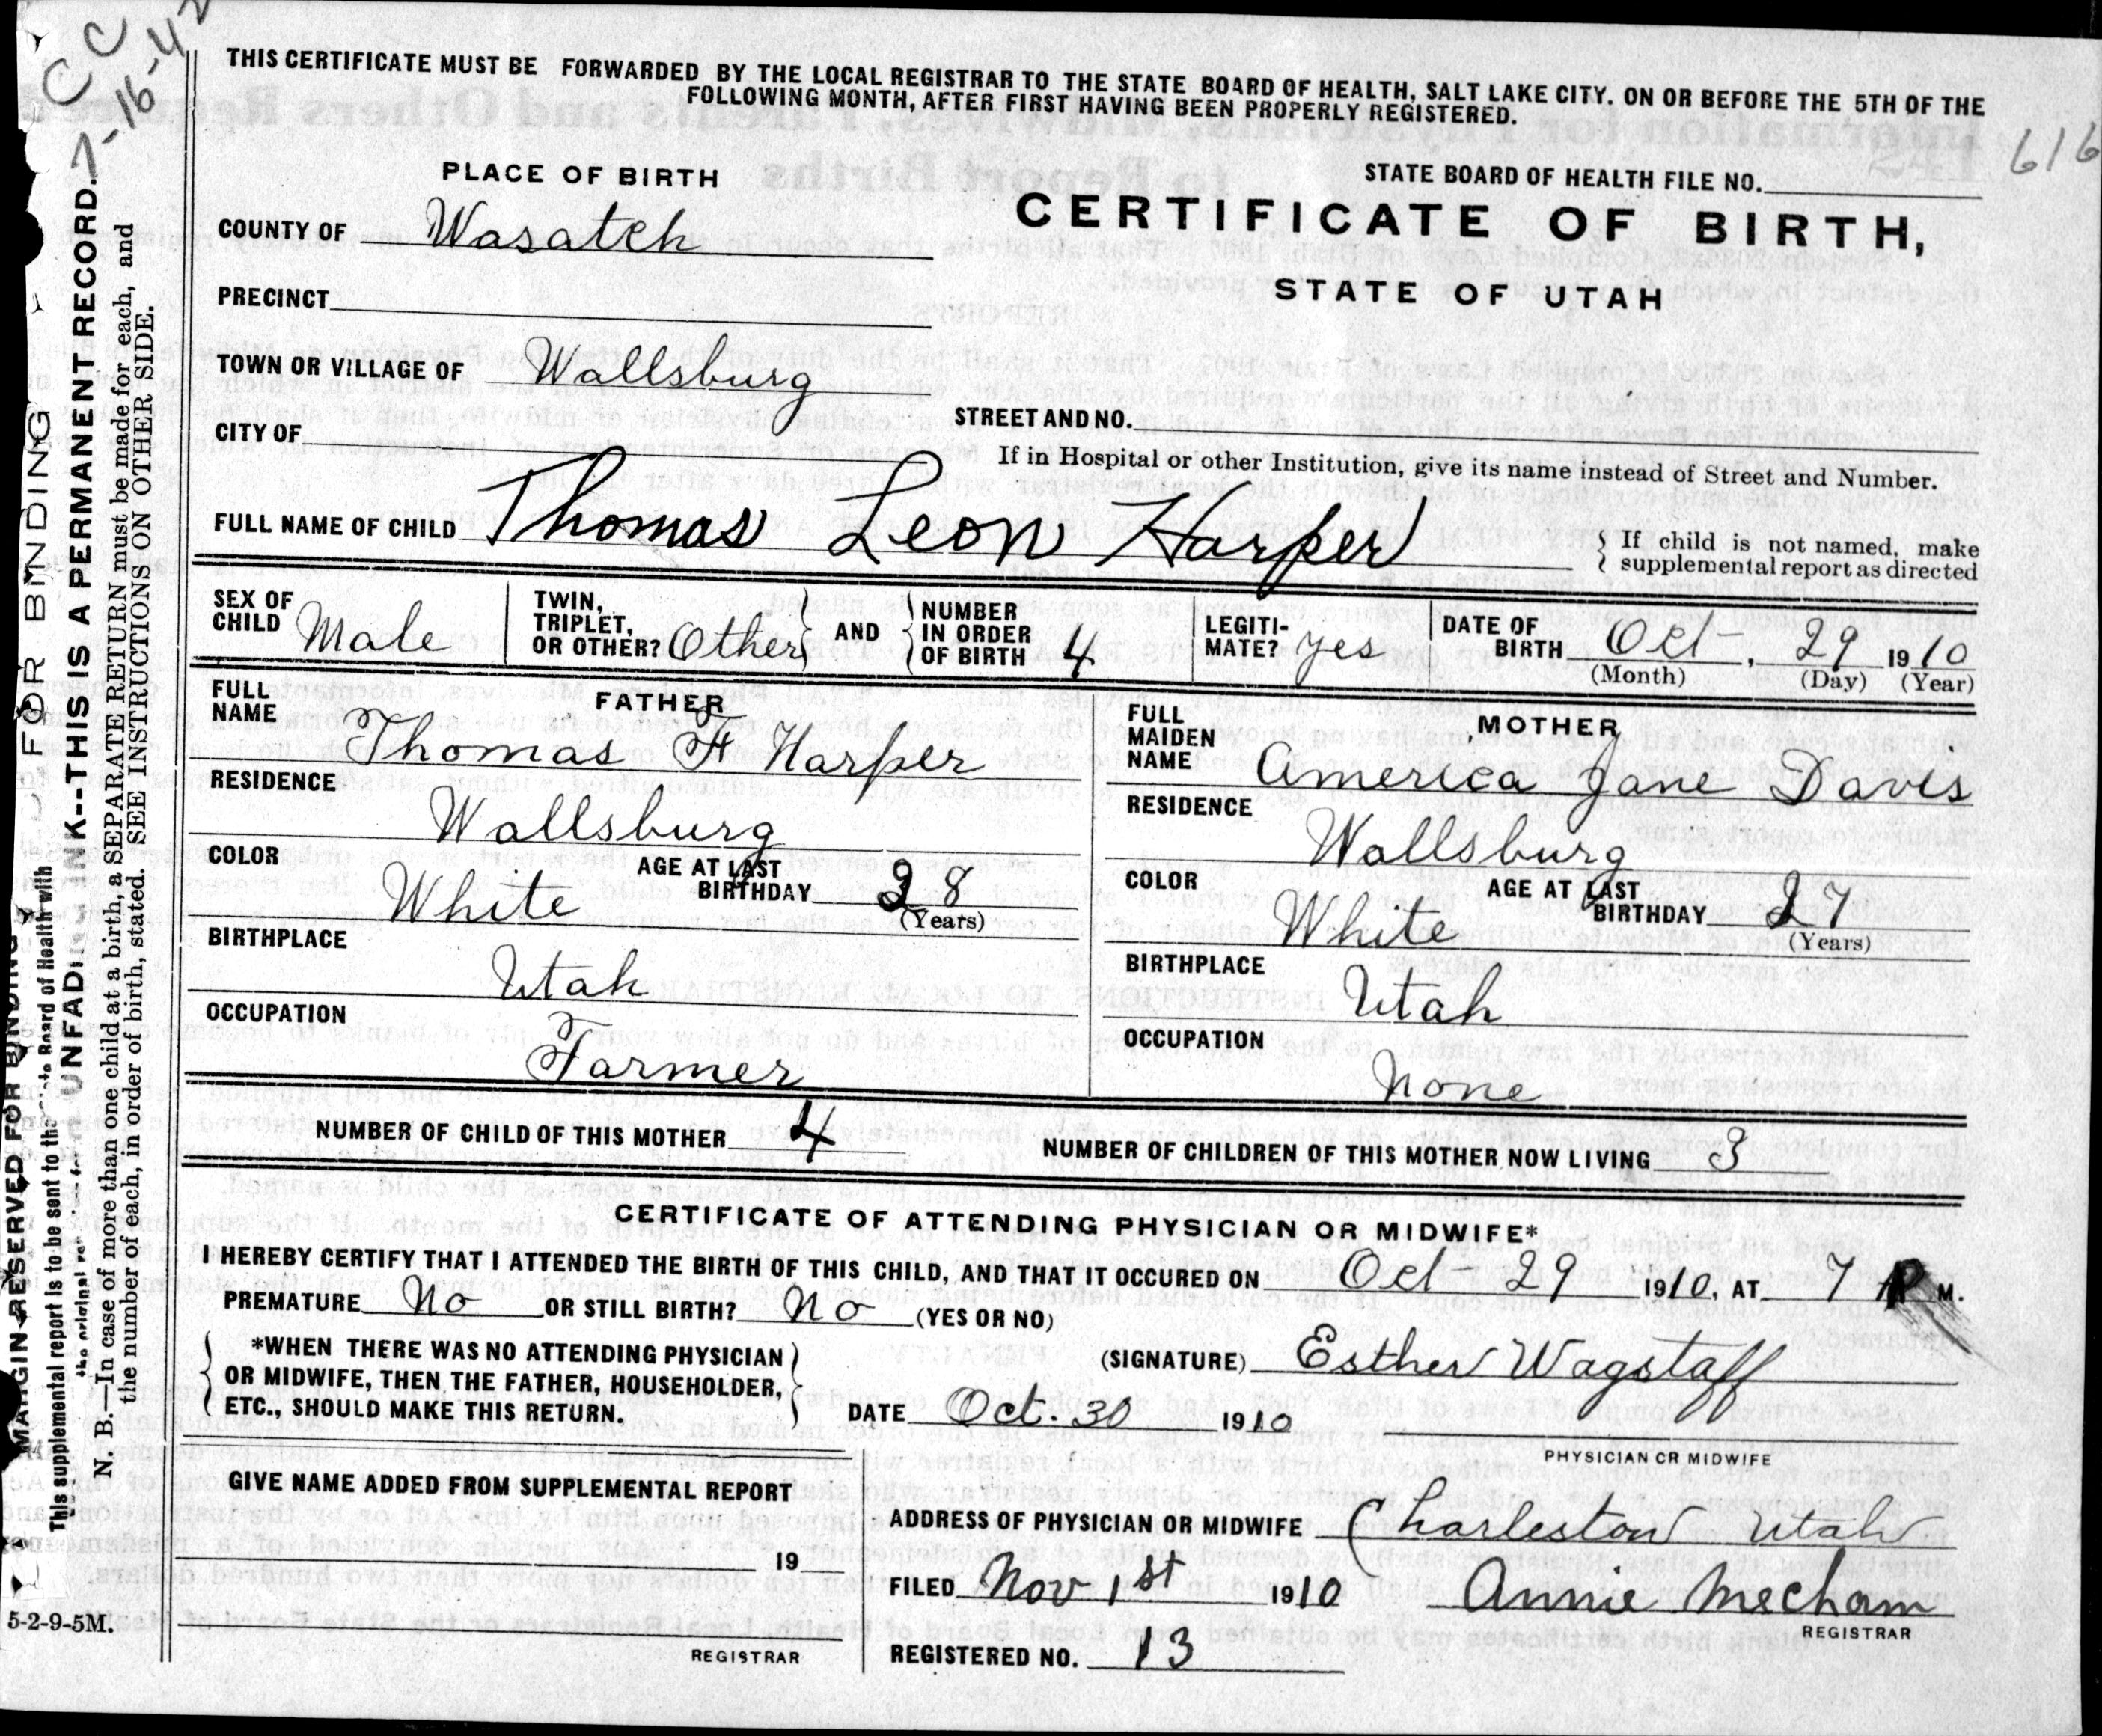 CC
7-16-42
THIS CERTIFICATE MUST BE FORWARDED BY THE LOCAL REGISTRAR TO THE STATE BOARD OF HEALTH, SALT LAKE CITY. ON OR BEFORE THE 5TH OF THE
FOLLOWING MONTH, AFTER FIRST HAVING BEEN PROPERLY REGISTERED.
616
PLACE OF BIRTH
STATE BOARD OF HEALTH FILE NO.
CERTIFICATE OF BIRTH,
STATE OF UTAH
COUNTY OF Wasatch
PRECINCT
TOWN OR VILLAGE OF Wallsburg
STREET AND NO.
CITY OF
If in Hospital or other Institution, give its name instead of Street and Number.
FULL NAME OF CHILD Thomas Leon Harper
{ If child is not named, make
{ supplemental report as directed
SEX OF CHILD Male
TWIN, TRIPLET, OR OTHER? Other } AND { NUMBER IN ORDER OF BIRTH 4
LEGITIMATE? yes
DATE OF BIRTH Oct, 29 1910
(Month) (Day) (Year)
FATHER
FULL NAME Thomas F Harper
RESIDENCE Wallsburg
COLOR White AGE AT LAST BIRTHDAY 28
(Years)
BIRTHPLACE Utah
OCCUPATION Farmer
MOTHER
FULL MAIDEN NAME America Jane Davis
RESIDENCE Wallsburg
COLOR White AGE AT LAST BIRTHDAY 27
(Years)
BIRTHPLACE Utah
OCCUPATION None
NUMBER OF CHILD OF THIS MOTHER 4 NUMBER OF CHILDREN OF THIS MOTHER NOW LIVING 3
CERTIFICATE OF ATTENDING PHYSICIAN OR MIDWIFE*
I HEREBY CERTIFY THAT I ATTENDED THE BIRTH OF THIS CHILD, AND THAT IT OCCURED ON Oct 29 1910, AT 7 M.
PREMATURE No OR STILL BIRTH? No (YES OR NO)
*WHEN THERE WAS NO ATTENDING PHYSICIAN
OR MIDWIFE, THEN THE FATHER, HOUSEHOLDER,
ETC., SHOULD MAKE THIS RETURN.
(SIGNATURE) Esther Wagstaff
DATE Oct. 30 1910
PHYSICIAN OR MIDWIFE
GIVE NAME ADDED FROM SUPPLEMENTAL REPORT
ADDRESS OF PHYSICIAN OR MIDWIFE Charleston Utah
19
FILED Nov 1st 1910 Annie Mecham
REGISTRAR
REGISTRAR
REGISTERED NO. 13
5-2-9-5M.
FOR BINDING
MARGIN RESERVED FOR BINDING
This supplemental report is to be sent to the Board of Health with
the original
UNFADING INK--THIS IS A PERMANENT RECORD.
N. B.—In case of more than one child at a birth, a SEPARATE RETURN must be made for each, and
the number of each, in order of birth, stated. SEE INSTRUCTIONS ON OTHER SIDE.